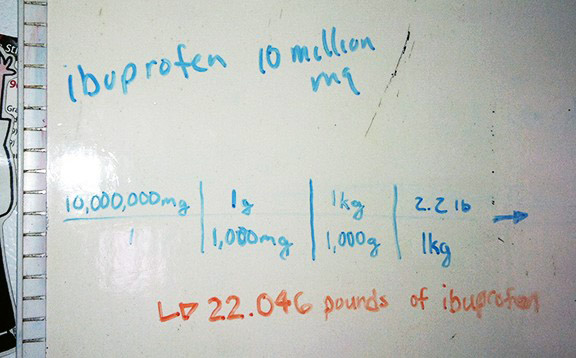 ibuprofen 10 million
mg
10,000,000mg | 1g | 1kg | 2.2 lb →
1 | 1,000mg | 1,000g | 1kg
↳ 22.046 pounds of ibuprofen